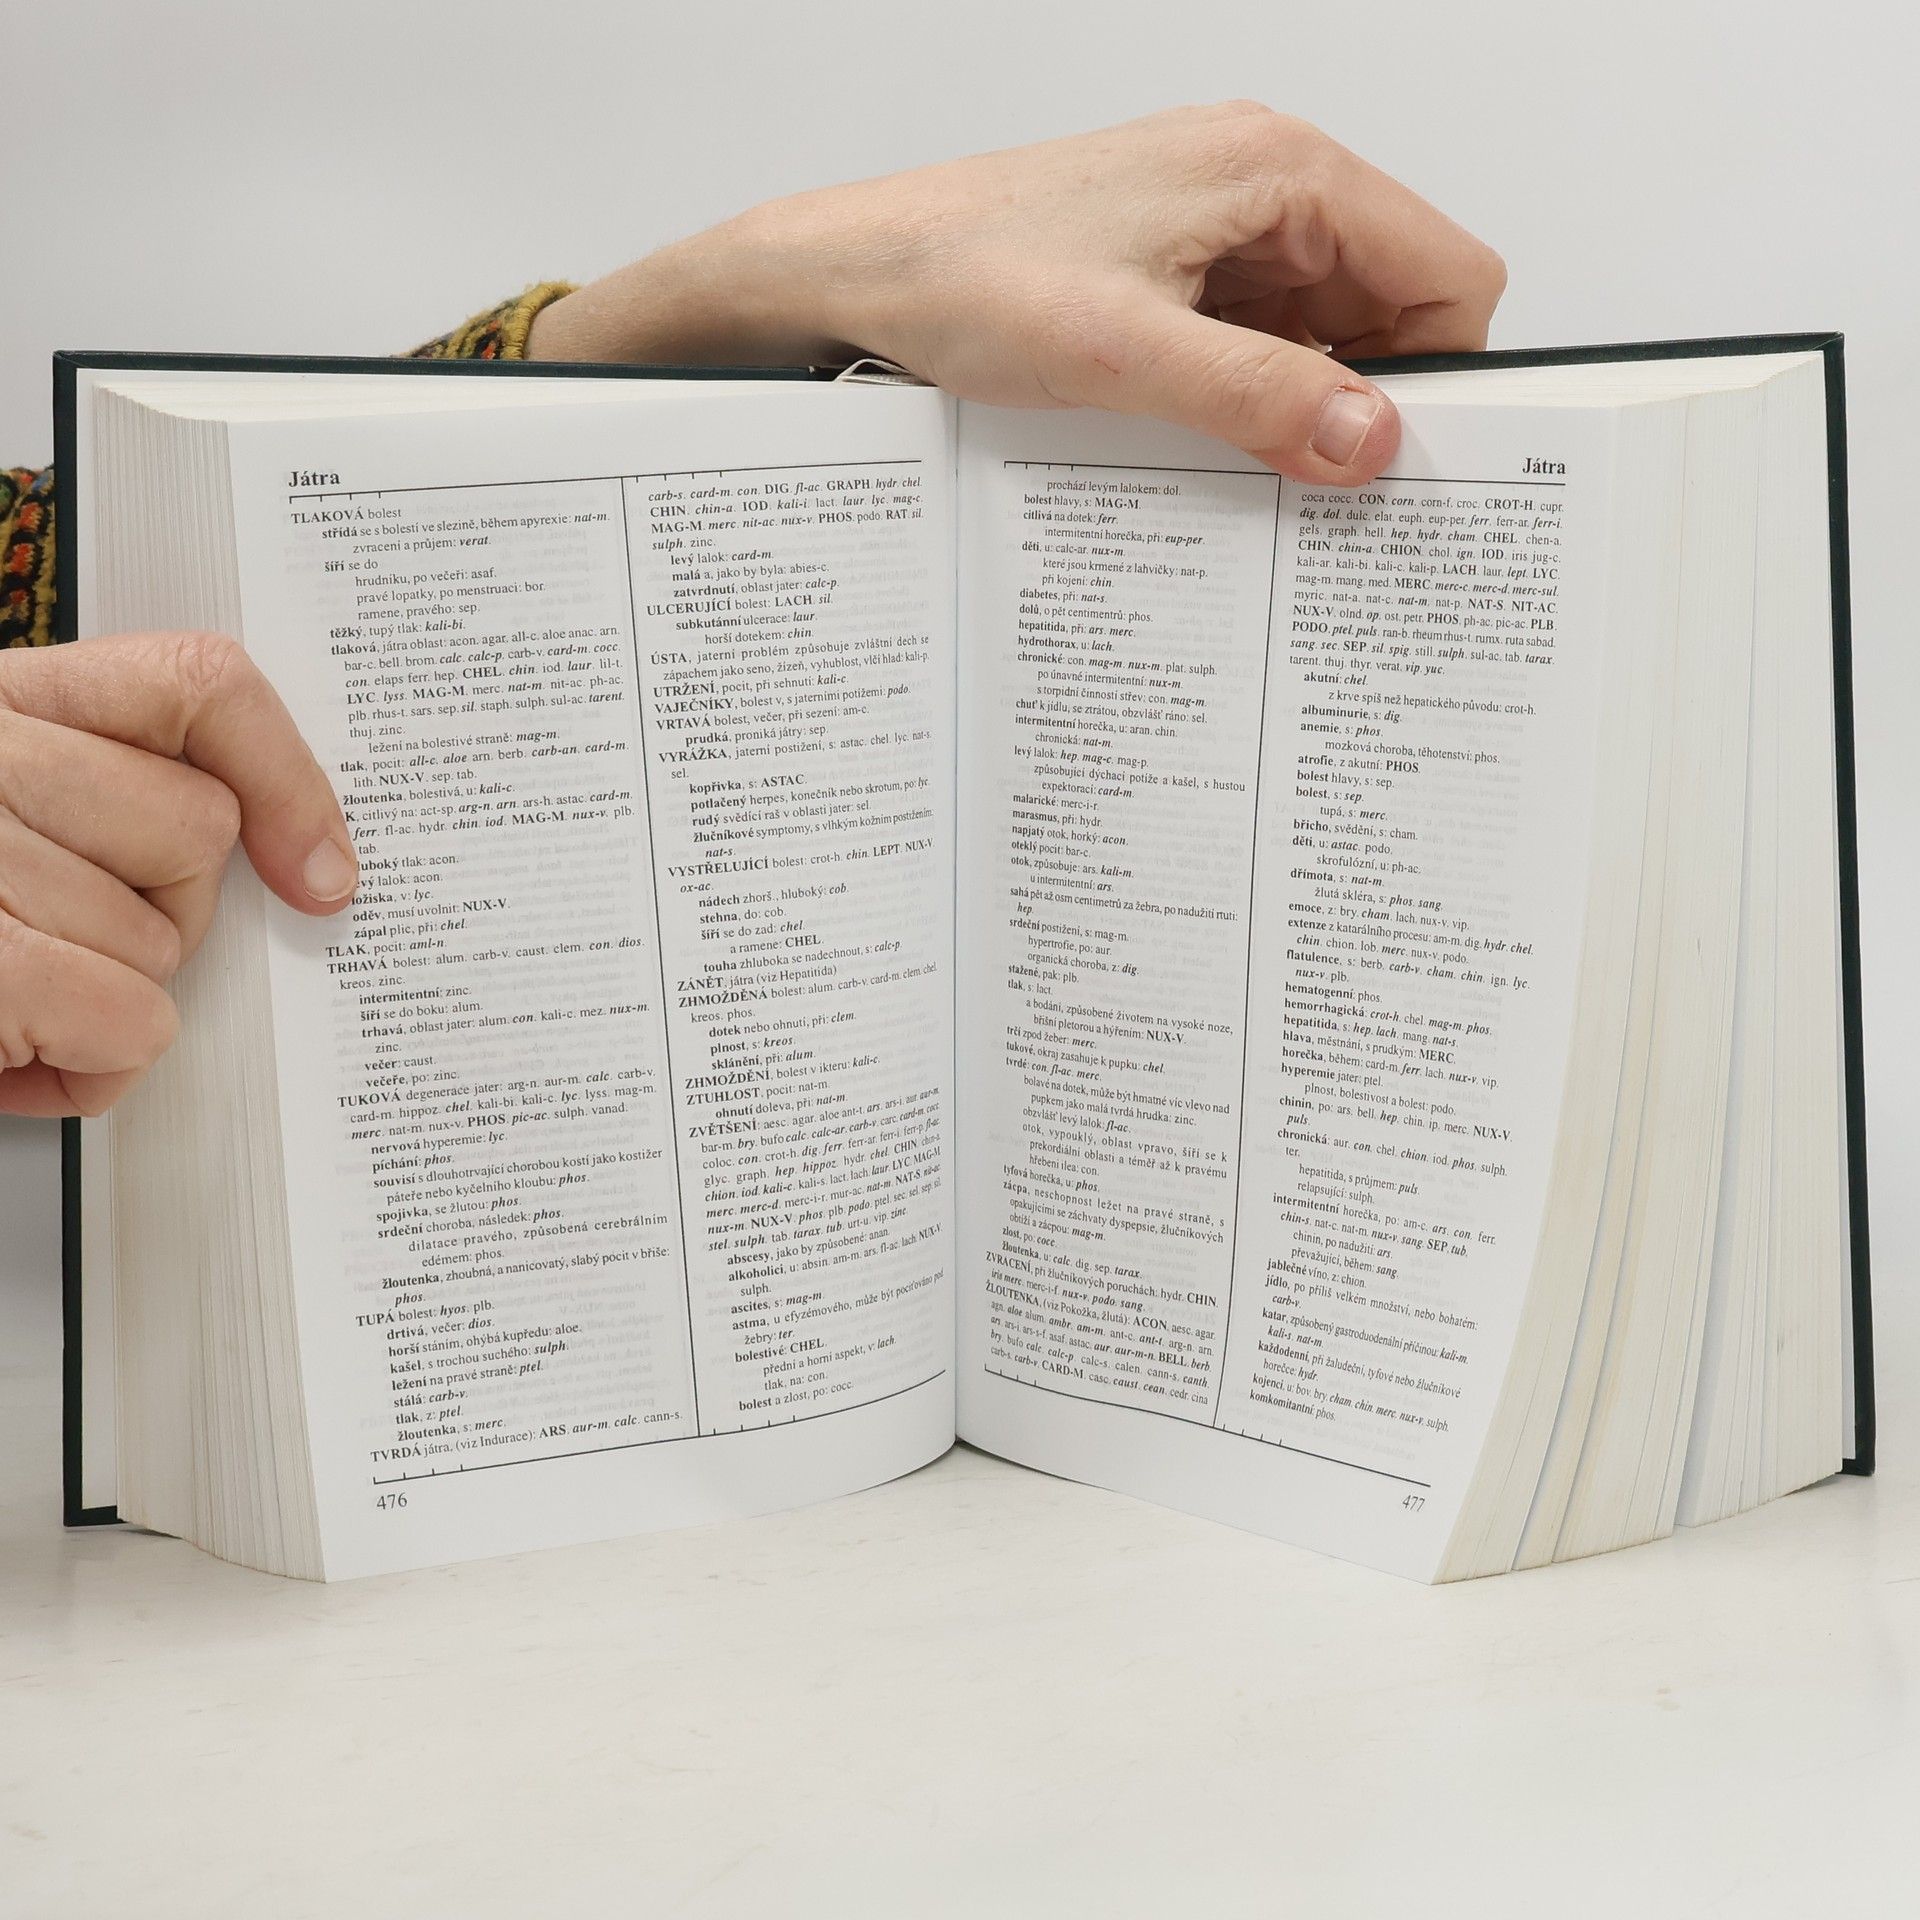 Játra
TLAKOVÁ bolest
střídá se s bolestí ve slezině, během apyrexie: nat-m.
zvracení a průjem: verat.
šíří se do
hrudníku, po večeři: asaf.
pravé lopatky, po menstruaci: bor.
ramene, pravého: sep.
těžký, tupý tlak: kali-bi.
tlaková, játra oblast: acon. agar. all-c. aloe anac. arn.
bar-c. bell. brom. calc. calc-p. carb-v. card-m. cocc.
con. elaps ferr. hep. CHEL. chin. iod. laur. lil-t.
LYC. lyss. MAG-M. merc. nat-m. nit-ac. ph-ac.
plb. rhus-t. sars. sep. sil. staph. sulph. sul-ac. tarent.
thuj. zinc.
ležení na bolestivé straně: mag-m.
tlak, pocit: all-c. aloe arn. berb. carb-an. card-m.
lith. NUX-V. sep. tab.
žloutenka, bolestivá, u: kali-c.
K, citlivý na: act-sp. arg-n. arn. ars-h. astac. card-m.
ferr. fl-ac. hydr. chin. iod. MAG-M. nux-v. plb.
tab.
luboký tlak: acon.
evý lalok: acon.
ložiska, v: lyc.
oděv, musí uvolnit: NUX-V.
zápal plic, při: chel.
TLAK, pocit: aml-n.
TRHAVÁ bolest: alum. carb-v. caust. clem. con. dios.
kreos. zinc.
intermitentní: zinc.
šíří se do boku: alum.
trhavá, oblast jater: alum. con. kali-c. mez. nux-m.
zinc.
večer: caust.
večeře, po: zinc.
TUKOVÁ degenerace jater: arg-n. aur-m. calc. carb-v.
card-m. hippoz. chel. kali-bi. kali-c. lyc. lyss. mag-m.
merc. nat-m. nux-v. PHOS. pic-ac. sulph. vanad.
nervová hyperemie: lyc.
píchání: phos.
souvisí s dlouhotrvající chorobou kostí jako kostižer
páteře nebo kyčelního kloubu: phos.
spojivka, se žlutou: phos.
srdeční choroba, následek: phos.
dilatace pravého, způsobená cerebrálním
edémem: phos.
žloutenka, zhoubná, a nanicovatý, slabý pocit v břiše:
phos.
TUPÁ bolest: hyos. plb.
drtivá, večer: dios.
horší stáním, ohýbá kupředu: aloe.
kašel, s trochou suchého: sulph.
ležení na pravé straně: ptel.
stálá: carb-v.
tlak, z: ptel.
žloutenka, s: merc.
TVRDÁ játra, (viz Indurace): ARS. aur-m. calc. cann-s.
476
carb-s. card-m. con. DIG. fl-ac. GRAPH. hydr. chel.
CHIN. chin-a. IOD. kali-i. lact. laur. lyc. mag-c.
MAG-M. merc. nit-ac. nux-v. PHOS. podo. RAT. sil.
sulph. zinc.
levý lalok: card-m.
malá a, jako by byla: abies-c.
zatvrdnutí, oblast jater: calc-p.
ULCERUJÍCÍ bolest: LACH. sil.
subkutánní ulcerace: laur.
horší dotekem: chin.
ÚSTA, jaterní problém způsobuje zvláštní dech se
zápachem jako seno, žízeň, vyhublost, vlčí hlad: kali-p.
UTRŽENÍ, pocit, při sehnutí: kali-c.
VAJEČNÍKY, bolest v, s jaterními potížemi: podo.
VRTAVÁ bolest, večer, při sezení: am-c.
prudká, proniká játry: sep.
VYRÁŽKA, jaterní postižení, s: astac. chel. lyc. nat-s.
sel.
kopřivka, s: ASTAC.
potlačený herpes, konečník nebo skrotum, po: lyc.
rudý svědící raš v oblasti jater: sel.
žlučníkové symptomy, s vlhkým kožním postižením:
nat-s.
VYSTŘELUJÍCÍ bolest: crot-h. chin. LEPT. NUX-V.
ox-ac.
nádech zhorš., hluboký: cob.
stehna, do: cob.
šíří se do zad: chel.
a ramene: CHEL.
touha zhluboka se nadechnout, s: calc-p.
ZÁNĚT, játra (viz Hepatitida)
ZHMOŽDĚNÁ bolest: alum. carb-v. card-m. clem. chel.
kreos. phos.
dotek nebo ohnutí, při: clem.
plnost, s: kreos.
sklánění, při: alum.
ZHMOŽDĚNÍ, bolest v ikteru: kali-c.
ZTUHLOST, pocit: nat-m.
ohnutí doleva, při: nat-m.
ZVĚTŠENÍ: aesc. agar. aloe ant-t. ars. ars-i. aur. aur-m.
bar-m. bry. bufo calc. calc-ar. carb-v. carc. card-m. cocc.
coloc. con. crot-h. dig. ferr. ferr-ar. ferr-i. ferr-p. fl-ac.
glyc. graph. hep. hippoz. hydr. chel. CHIN. chin-a.
chion. iod. kali-c. kali-s. lact. lach. laur. LYC. MAG-M.
merc. merc-d. merc-i-r. mur-ac. nat-m. NAT-S. nit-ac.
nux-m. NUX-V. phos. plb. podo. ptel. sec. sel. sep. sil.
stel. sulph. tab. tarax. tub. urt-u. vip. zinc.
abscesy, jako by způsobené: anan.
alkoholici, u: absin. am-m. ars. fl-ac. lach. NUX-V.
sulph.
ascites, s: mag-m.
astma, u efyzémového, může být pociťováno pod
žebry: ter.
bolestivé: CHEL.
přední a horní aspekt, v: lach.
tlak, na: con.
bolest a zlost, po: cocc.
Játra
prochází levým lalokem: dol.
bolest hlavy, s: MAG-M.
citlivá na dotek: ferr.
intermitentní horečka, při: eup-per.
děti, u: calc-ar. nux-m.
které jsou krmené z lahvičky: nat-p.
při kojení: chin.
diabetes, při: nat-s.
dolů, o pět centimentrů: phos.
hepatitida, při: ars. merc.
hydrothorax, u: lach.
chronické: con. mag-m. nux-m. plat. sulph.
po únavné intermitentní: nux-m.
s torpidní činností střev: con. mag-m.
chuť k jídlu, se ztrátou, obzvlášť ráno: sel.
intermitentní horečka, u: aran. chin.
chronická: nat-m.
levý lalok: hep. mag-c. mag-p.
způsobující dýchací potíže a kašel, s hustou
expektorací: card-m.
malarické: merc-i-r.
marasmus, při: hydr.
napjatý otok, horký: acon.
oteklý pocit: bar-c.
otok, způsobuje: ars. kali-m.
u intermitentní: ars.
sahá pět až osm centimetrů za žebra, po nadužití rtuti:
hep.
srdeční postižení, s: mag-m.
hypertrofie, po: aur.
organická choroba, z: dig.
stažené, pak: plb.
tlak, s: lact.
a bodání, způsobené životem na vysoké noze,
břišní pletorou a hýřením: NUX-V.
trčí zpod žeber: merc.
tukové, okraj zasahuje k pupku: chel.
tvrdé: con. fl-ac. merc.
bolavé na dotek, může být hmatné víc vlevo nad
pupkem jako malá tvrdá hrudka: zinc.
obzvlášť levý lalok: fl-ac.
otok, vypouklý, oblast vpravo, šíří se k
prekordiální oblasti a téměř až k pravému
hřebeni ilea: con.
tyfová horečka, u: phos.
zácpa, neschopnost ležet na pravé straně, s
opakujícími se záchvaty dyspepsie, žlučníkových
obtíží a zácpou: mag-m.
zlost, po: cocc.
žloutenka, u: calc. dig. sep. tarax.
ZVRACENÍ, při žlučníkových poruchách: hydr. CHIN.
iris merc. merc-i-f. nux-v. podo. sang.
ŽLOUTENKA, (viz Pokožka, žlutá): ACON. aesc. agar.
agn. aloe alum. ambr. am-m. ant-c. ant-t. arg-n. arn.
ars. ars-i. ars-s-f. asaf. astac. aur. aur-m-n. BELL. berb.
bry. bufo calc. calc-p. calc-s. calen. cann-s. canth.
carb-s. carb-v. CARD-M. casc. caust. cean. cedr. cina
coca cocc. CON. corn. corn-f. croc. CROT-H. cupr.
dig. dol. dulc. elat. euph. eup-per. ferr. ferr-ar. ferr-i.
gels. graph. hell. hep. hydr. cham. CHEL. chen-a.
CHIN. chin-a. CHION. chol. ign. IOD. iris jug-c.
kali-ar. kali-bi. kali-c. kali-p. LACH. laur. lept. LYC.
mag-m. mang. med. MERC. merc-c. merc-d. merc-sul.
myric. nat-a. nat-c. nat-m. nat-p. NAT-S. NIT-AC.
NUX-V. olnd. op. ost. petr. PHOS. ph-ac. pic-ac. PLB.
PODO. ptel. puls. ran-b. rheum rhus-t. rumx. ruta sabad.
sang. sec. SEP. sil. spig. still. sulph. sul-ac. tab. tarax.
tarent. thuj. thyr. verat. vip. yuc.
akutní: chel.
z krve spíš než hepatického původu: crot-h.
albuminurie, s: dig.
anemie, s: phos.
mozková choroba, těhotenství: phos.
atrofie, z akutní: PHOS.
bolest hlavy, s: sep.
bolest, s: sep.
tupá, s: merc.
břicho, svědění, s: cham.
děti, u: astac. podo.
skrofulózní, u: ph-ac.
dřímota, s: nat-m.
žlutá skléra, s: phos. sang.
emoce, z: bry. cham. lach. nux-v. vip.
extenze z katarálního procesu: am-m. dig. hydr. chel.
chin. chion. lob. merc. nux-v. podo.
flatulence, s: berb. carb-v. cham. chin. ign. lyc.
nux-v. plb.
hematogenní: phos.
hemorrhagická: crot-h. chel. mag-m. phos.
hepatitida, s: hep. lach. mang. nat-s.
hlava, městnání, s prudkým: MERC.
horečka, během: card-m. ferr. lach. nux-v. vip.
hyperemie jater: ptel.
plnost, bolestivost a bolest: podo.
chinin, po: ars. bell. hep. chin. ip. merc. NUX-V.
puls.
chronická: aur. con. chel. chion. iod. phos. sulph.
ter.
hepatitida, s průjmem: puls.
relapsující: sulph.
intermitentní horečka, po: am-c. ars. con. ferr.
chin-s. nat-c. nat-m. nux-v. sang. SEP. tub.
chinin, po nadužití: ars.
převažující, během: sang.
jablečné víno, z: chion.
jídlo, po příliš velkém množství, nebo bohatém:
carb-v.
katar, způsobený gastroduodenální příčinou: kali-m.
kali-s. nat-m.
každodenní, při žaludeční, tyfové nebo žlučníkové
horečce: hydr.
kojenci, u: bov. bry. cham. chin. merc. nux-v. sulph.
komkomitantní: phos.
477